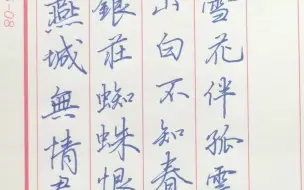 雪花伴孤雲
山白不知春
銀莊蜘蛛恨
燕城無情
-08